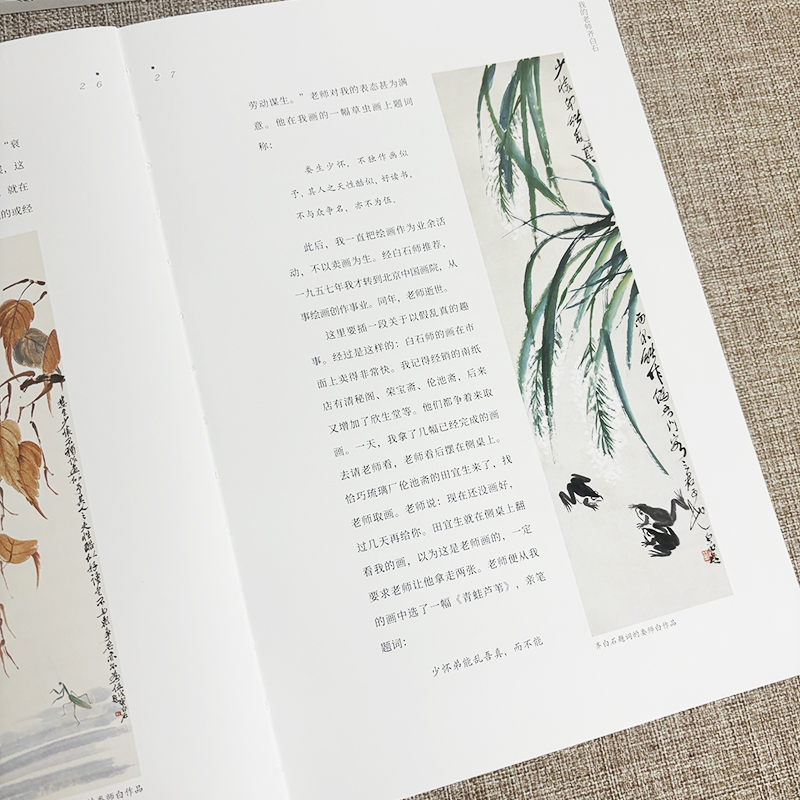 26
27
我的老师齐白石
"哀
这
就在
的或经
劳动谋生。"老师对我的表态甚为满
意。他在我画的一幅草虫画上题词
称:
娄生少怀,不独作画似
予,其人之天性酷似,好读书,
不与众争名,亦不为伍。
此后,我一直把绘画作为业余活
动,不以卖画为生。经白石师推荐,
一九五七年我才转到北京中国画院,从
事绘画创作事业。同年,老师逝世。
这里要插一段关于以假乱真的趣
事。经过是这样的:白石师的画在市
面上卖得非常快。我记得经销的南纸
店有清秘阁、荣宝斋、伦池斋,后来
又增加了欣生堂等。他们都争着来取
画。一天,我拿了几幅已经完成的画
去请老师看,老师看后摆在侧桌上。
恰巧琉璃厂伦池斋的田宜生来了,找
老师取画。老师说:现在还没画好,
过几天再给你。田宜生就在侧桌上翻
看我的画,以为这是老师画的,一定
要求老师让他拿走两张。老师便从我
的画中选了一幅《青蛙芦苇》,亲笔
题词:
少怀弟能乱吾真,而不能
齐白石题词的娄师白作品
娄师白作品